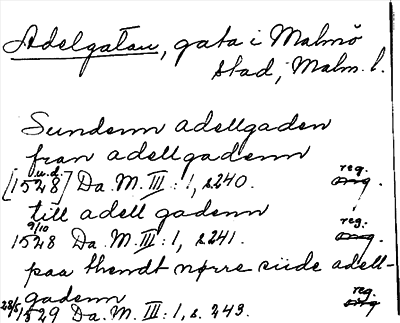 Adelgatan, gata i Malmö
stad, Malm. l.
Sundenn adellgaden
fran adellgadenn
[1528 u.d.] Da. M. III: 1, s. 240. reg.
till adell gadenn
9/10 1528 Da. M. III: 1, s. 241. reg.
paa thendt nørre siide adell-
gadenn
1529 Da. M. III: 1, s. 243. reg.